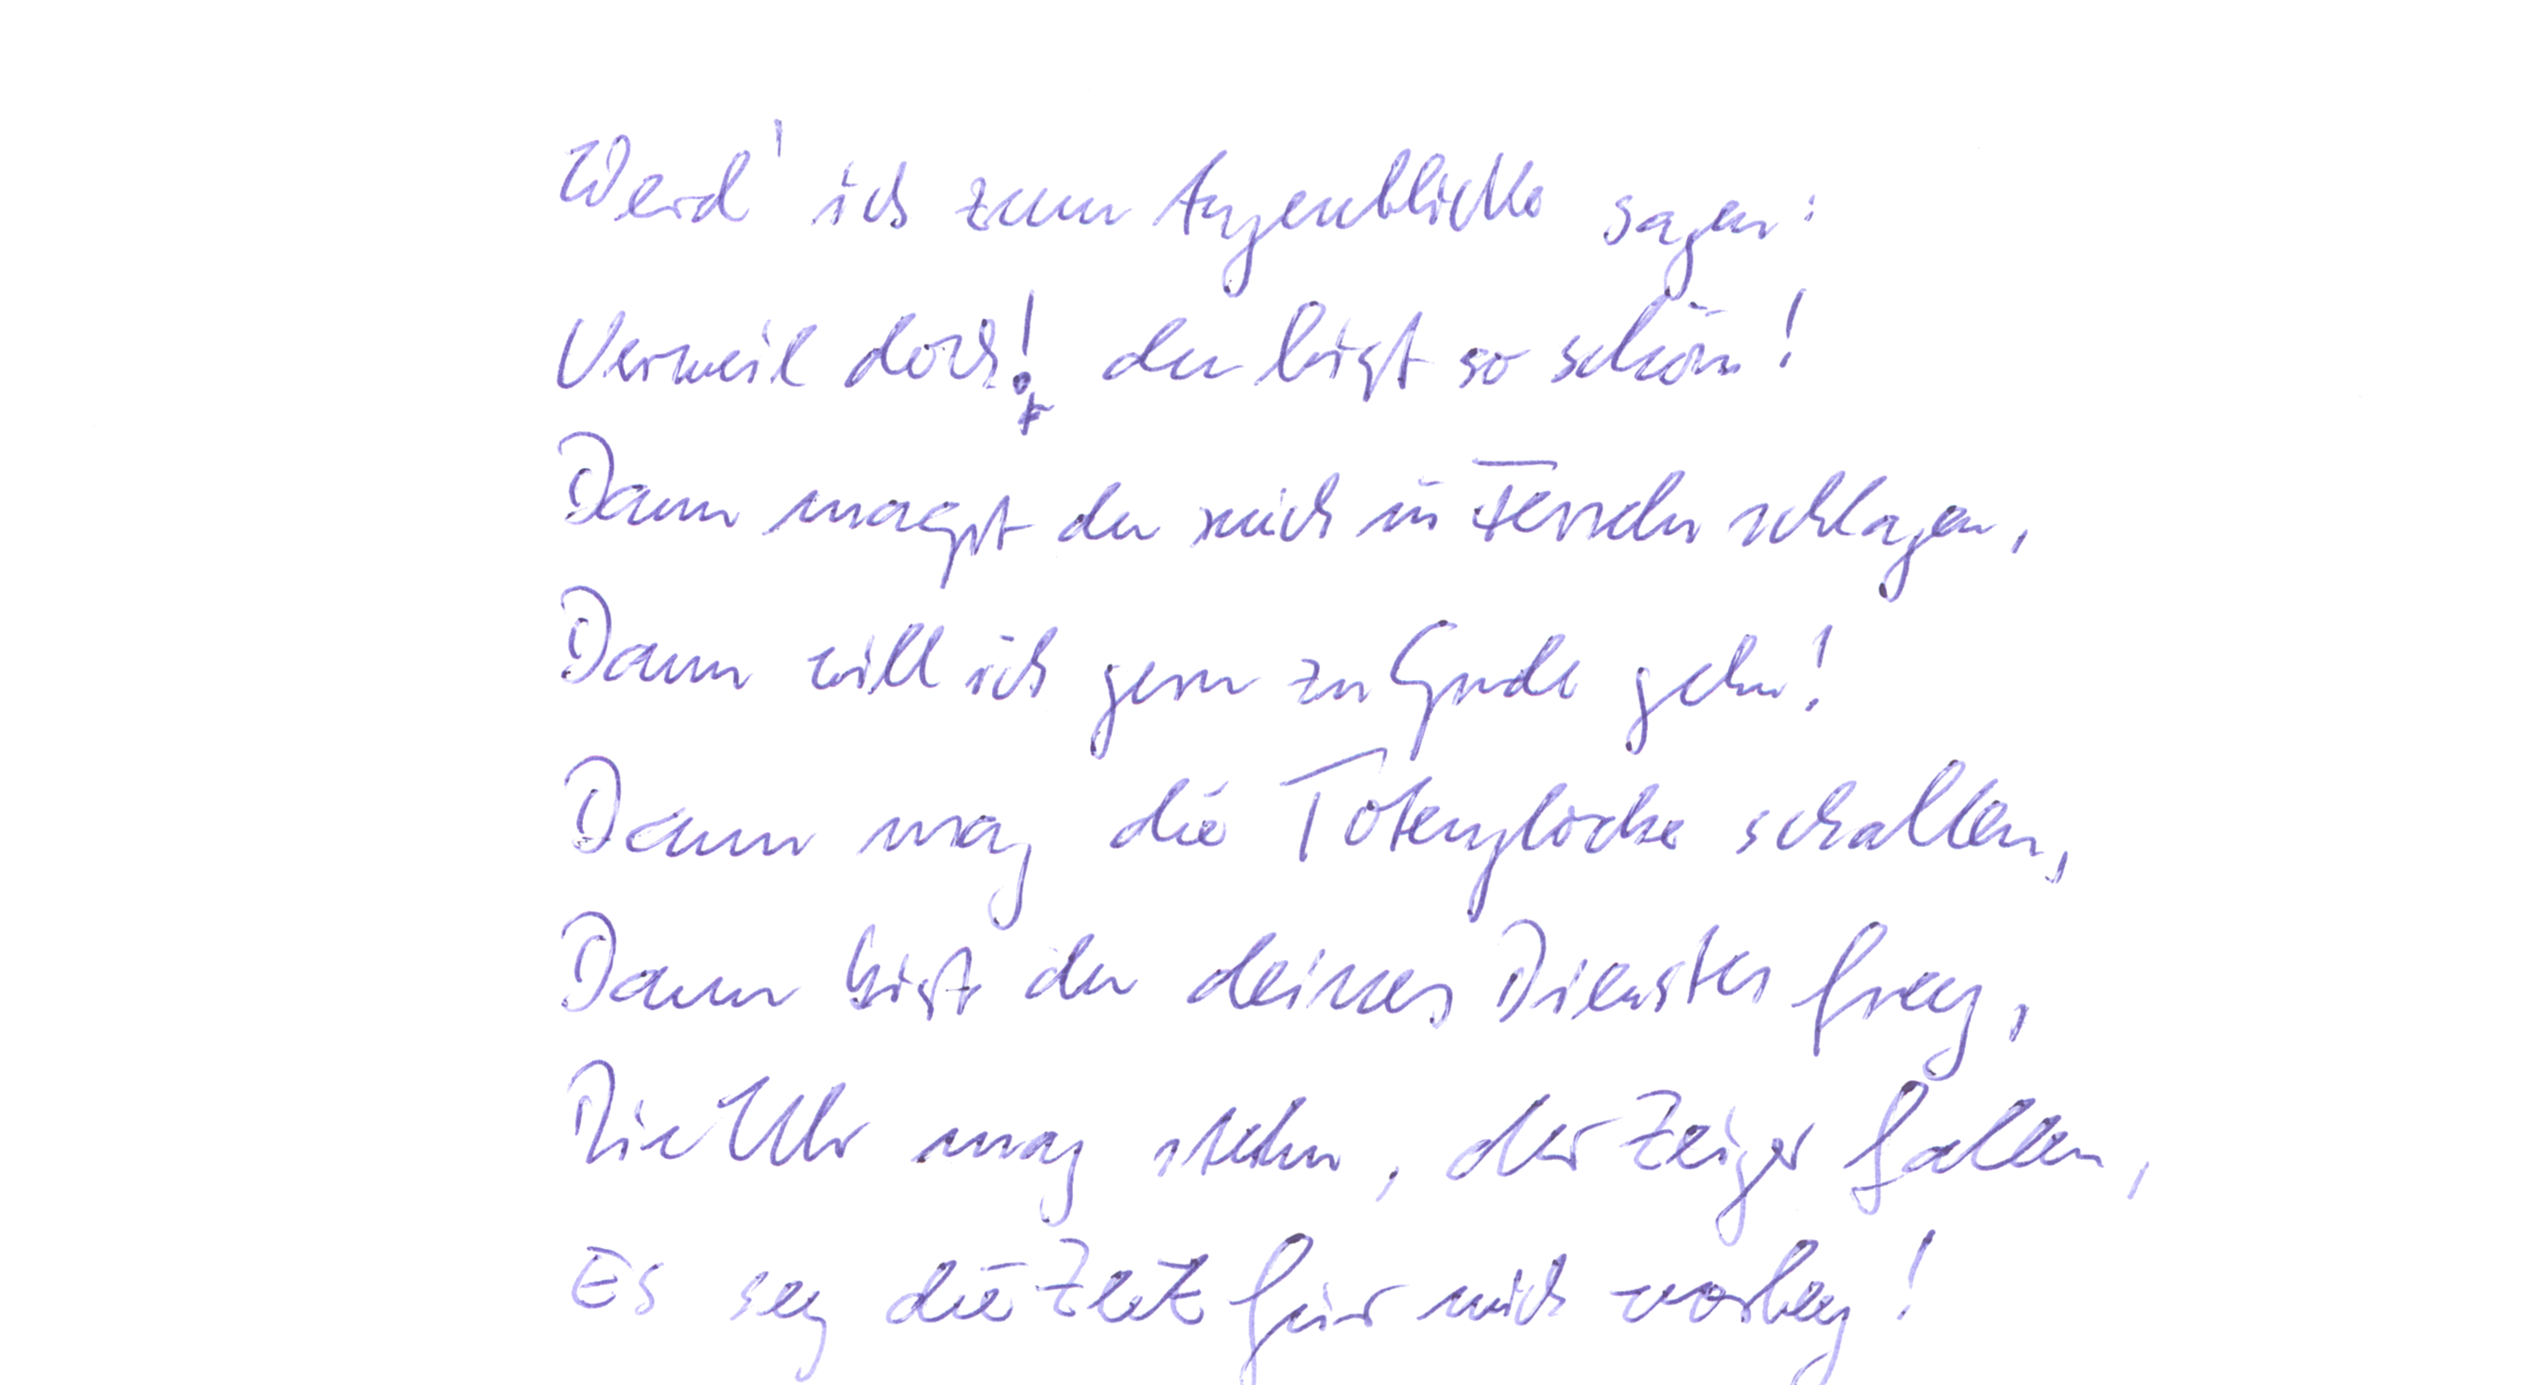 Werd' ich zum Augenblicke sagen:
Verweil doch! du bist so schön!
Dann magst du mich in Fesseln schlagen,
Dann will ich gern zu Grude gehn!
Dann mag die Totenglocke schallen,
Dann bist du deines Dienstes frey,
Die Uhr mag stehn, der Zeiger fallen,
Es sey die Zeit für mich vorbey!